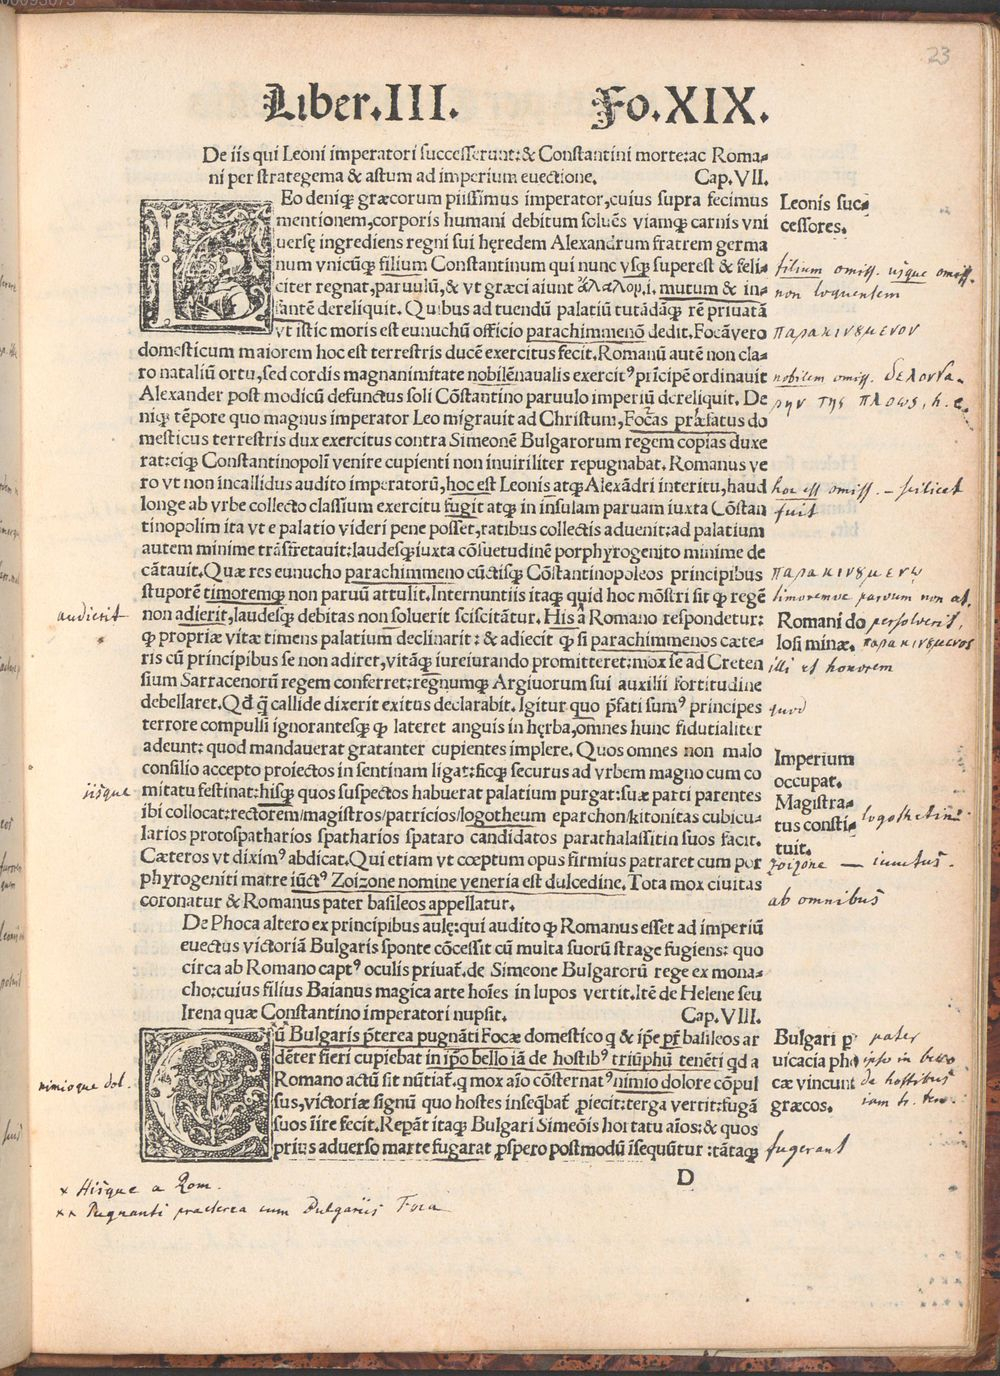 23
Liber.III. Fo.XIX.
De iis qui Leoni imperatori successerunt:& Constantini morte:ac Roma⸗
ni per strategema & astum ad imperium euectione. Cap.VII.
LEo deniq̃ græcorum piissimus imperator,cuius supra fecimus
mentionem,corporis humani debitum soluẽs viamq̃ carnis vni
uersę ingrediens regni sui hęredem Alexandrum fratrem germa
num vnicũq̃ filium Constantinum qui nunc vsq̃ superest & feli⸗
citer regnat,paruulũ,& vt græci aiunt ἄλαλον,i,mutum & in⸗
fantẽ dereliquit. Quibus ad tuendũ palatiũ tutãdãq̃ rẽ priuatã
vt istic moris est eunuchũ officio parachimmenõ dedit.Focã vero
domesticum maiorem hoc est terrestris ducẽ exercitus fecit.Romanũ autẽ non cla⸗
ro nataliũ ortu,sed cordis magnanimitate nobilẽ naualis exercitꝰ prĩcipẽ ordinauit
Alexander post modicũ defunctus soli Cõstantino paruulo imperiũ dereliquit. De
niq̃ tẽpore quo magnus imperator Leo migrauit ad Christum,Focas præfatus do
mesticus terrestris dux exercitus contra Simeonẽ Bulgarorum regem copias duxe
rat:eiq̃ Constantinopolĩ venire cupienti non inuiriliter repugnabat. Romanus ve
ro vt non incallidus audito imperatorũ,hoc est Leonis atq̃ Alexãdri interitu,haud
longe ab vrbe collecto classium exercitu fugit atq̃ in insulam paruam iuxta Cõstan
tinopolim ita vt e palatio videri pene posset,ratibus collectis aduenit:ad palatium
autem minime trãsfretauit:laudesq̃ iuxta cõsuetudinẽ porphyrogenito minime de
cãtauit.Quæ res eunucho parachimmeno cũctisq̃ Cõstantinopoleos principibus
stuporẽ timoremq̃ non paruũ attulit.Internuntiis itaq̃ quid hoc mõstri sit q̃ regẽ
non adierit,laudesq̃ debitas non soluerit sciscitãtur. His a Romano respondetur:
q̃ propriæ vitæ timens palatium declinarit: & adiecit q̃ si parachimmenos cæte⸗
ris cũ principibus se non adiret,vitãq̃ iureiurando promitteret:mox se ad Creten
sium Sarracenorũ regem conferret:regnumq̃ Argiuorum sui auxilii fortitudine
debellaret.Qđ q̃ callide dixerit exitus declarabit. Igitur quo p̃fati sumꝰ principes
terrore compulsi ignorantesq̃ q̃ lateret anguis in hęrba,omnes hunc fidutialiter
adeunt: quod mandauerat gratanter cupientes implere. Quos omnes non malo
consilio accepto proiectos in sentinam ligat:sicq̃ securus ad vrbem magno cum co
mitatu festinat:hisq̃ quos suspectos habuerat palatium purgat:suæ parti parentes
ibi collocat:rectorem/magistros/patricios/logotheum eparchon/kitonitas cubicu⸗
larios protospatharios spatharios spataro candidatos parathalassitin suos facit.
Cæteros vt diximꝰ abdicat.Qui etiam vt cœptum opus firmius patraret cum por
phyrogeniti matre iũctꝰ Zoizone nomine veneria est dulcedine.Tota mox ciuitas
coronatur & Romanus pater basileos appellatur.
De Phoca altero ex principibus aulę:qui audito q̃ Romanus esset ad imperiũ
euectus victoriã Bulgaris sponte cõcessit cũ multa suorũ strage fugiens: quo
circa ab Romano captꝰ oculis priuat̃.de Simeone Bulgarorũ rege ex mona⸗
cho:cuius filius Baianus magica arte hoĩes in lupos vertit.Itẽ de Helene seu
Irena quæ Constantino imperatori nupsit. Cap.VIII.
Cũ Bulgaris p̃terea pugnãti Focæ domestico q & ip̃e pr̃ basileos ar
dẽter fieri cupiebat in ip̃o bello iã de hostibꝰ triũphũ tenẽti qđ a
Romano actũ sit nũtiat̃.q mox aĩo cõsternatꝰ nimio dolore cõpul
sus,victoriæ signũ quo hostes inseq̃bat̃ ꝓiecit:terga vertit:fugã
suos iĩre fecit.Repãt itaq̃ Bulgari Simeõis hortatu aĩos:& quos
prius aduerso marte fugarat ꝓspero postmodũ ĩsequũtur :tãtaq̃
D
Leonis suc⸗
cessores.
filium omiss. usque omiss.
non loquentem
παρακινȣμενον
nobilem omiss. δελονγα⸗
ρην της πλοως, h. e.
hoc est omiss. – scilicet
fuit
παρακινȣμενῳ
timoremve parvum non at.
audierit
Romani do persolverit,
losi minæ. παρακινȣμενος
illi et honorem
quod
Imperium
occupat.
Magistra⸗
tus consti⸗ logothetin
tuit.
iisque
zoizone — iunctus.
ab omnibus
Bulgari p̱ pater
uicacia pho ipso in bello
cæ vincunt de hostibus
græcos. iam tr. ten
nimioque dol.
fugerant
× Hisque a Rom.
×× Pugnanti praeterea cum Bulgariis Foca